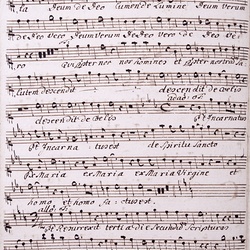 la Deum de Deo lumen de lumine Deum verum
de Deo vero Deum verum de Deo vero de Deo ve
ro Qui propter nos homines et propter nostram sa
lutem descendit descendit de Coelis
adag: of:
descendit de Coelis Et Incarnatus
Et Incarna tus est de Spiritu Sancto
Ex Maria ex Maria Virgine et
homo et homo fa ctus est.
all:
Et Resurrexit tertia die secundum Scripturas